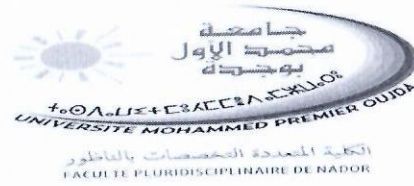 جامعة
محمد الأول
بوجدة
UNIVERSITE MOHAMMED PREMIER OUJDA
الكلية المتعددة التخصصات بالناظور
FACULTE PLURIDISCIPLINAIRE DE NADOR